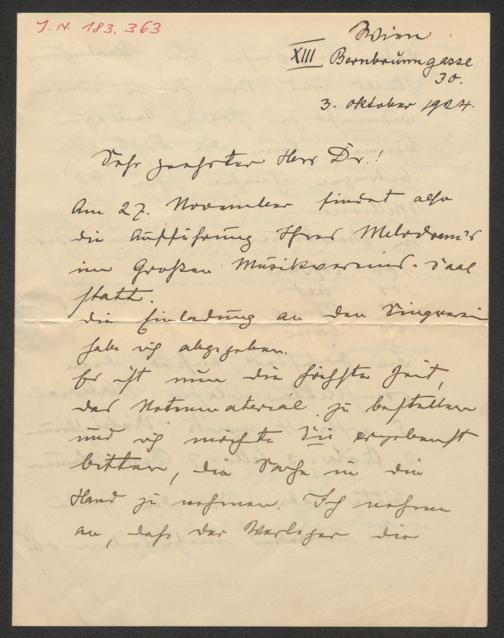 I.N. 183.363
Wien
XIII Bernbrunngasse
30.
3. Oktober 1924.
Sehr geehrter Herr Dr.!
Am 27. November findet also
die Aufführung Ihres Melodram's
im Großen Musikvereins-Saal
statt.
Die Einladung an den Singverein
habe ich abgegeben.
Es ist nun die höchste Zeit,
das Notenmaterial zu bestellen
und ich möchte Sie ergebenst
bitten, die Sache in die
Hand zu nehmen. Ich nehme
an, daß der Verleger die